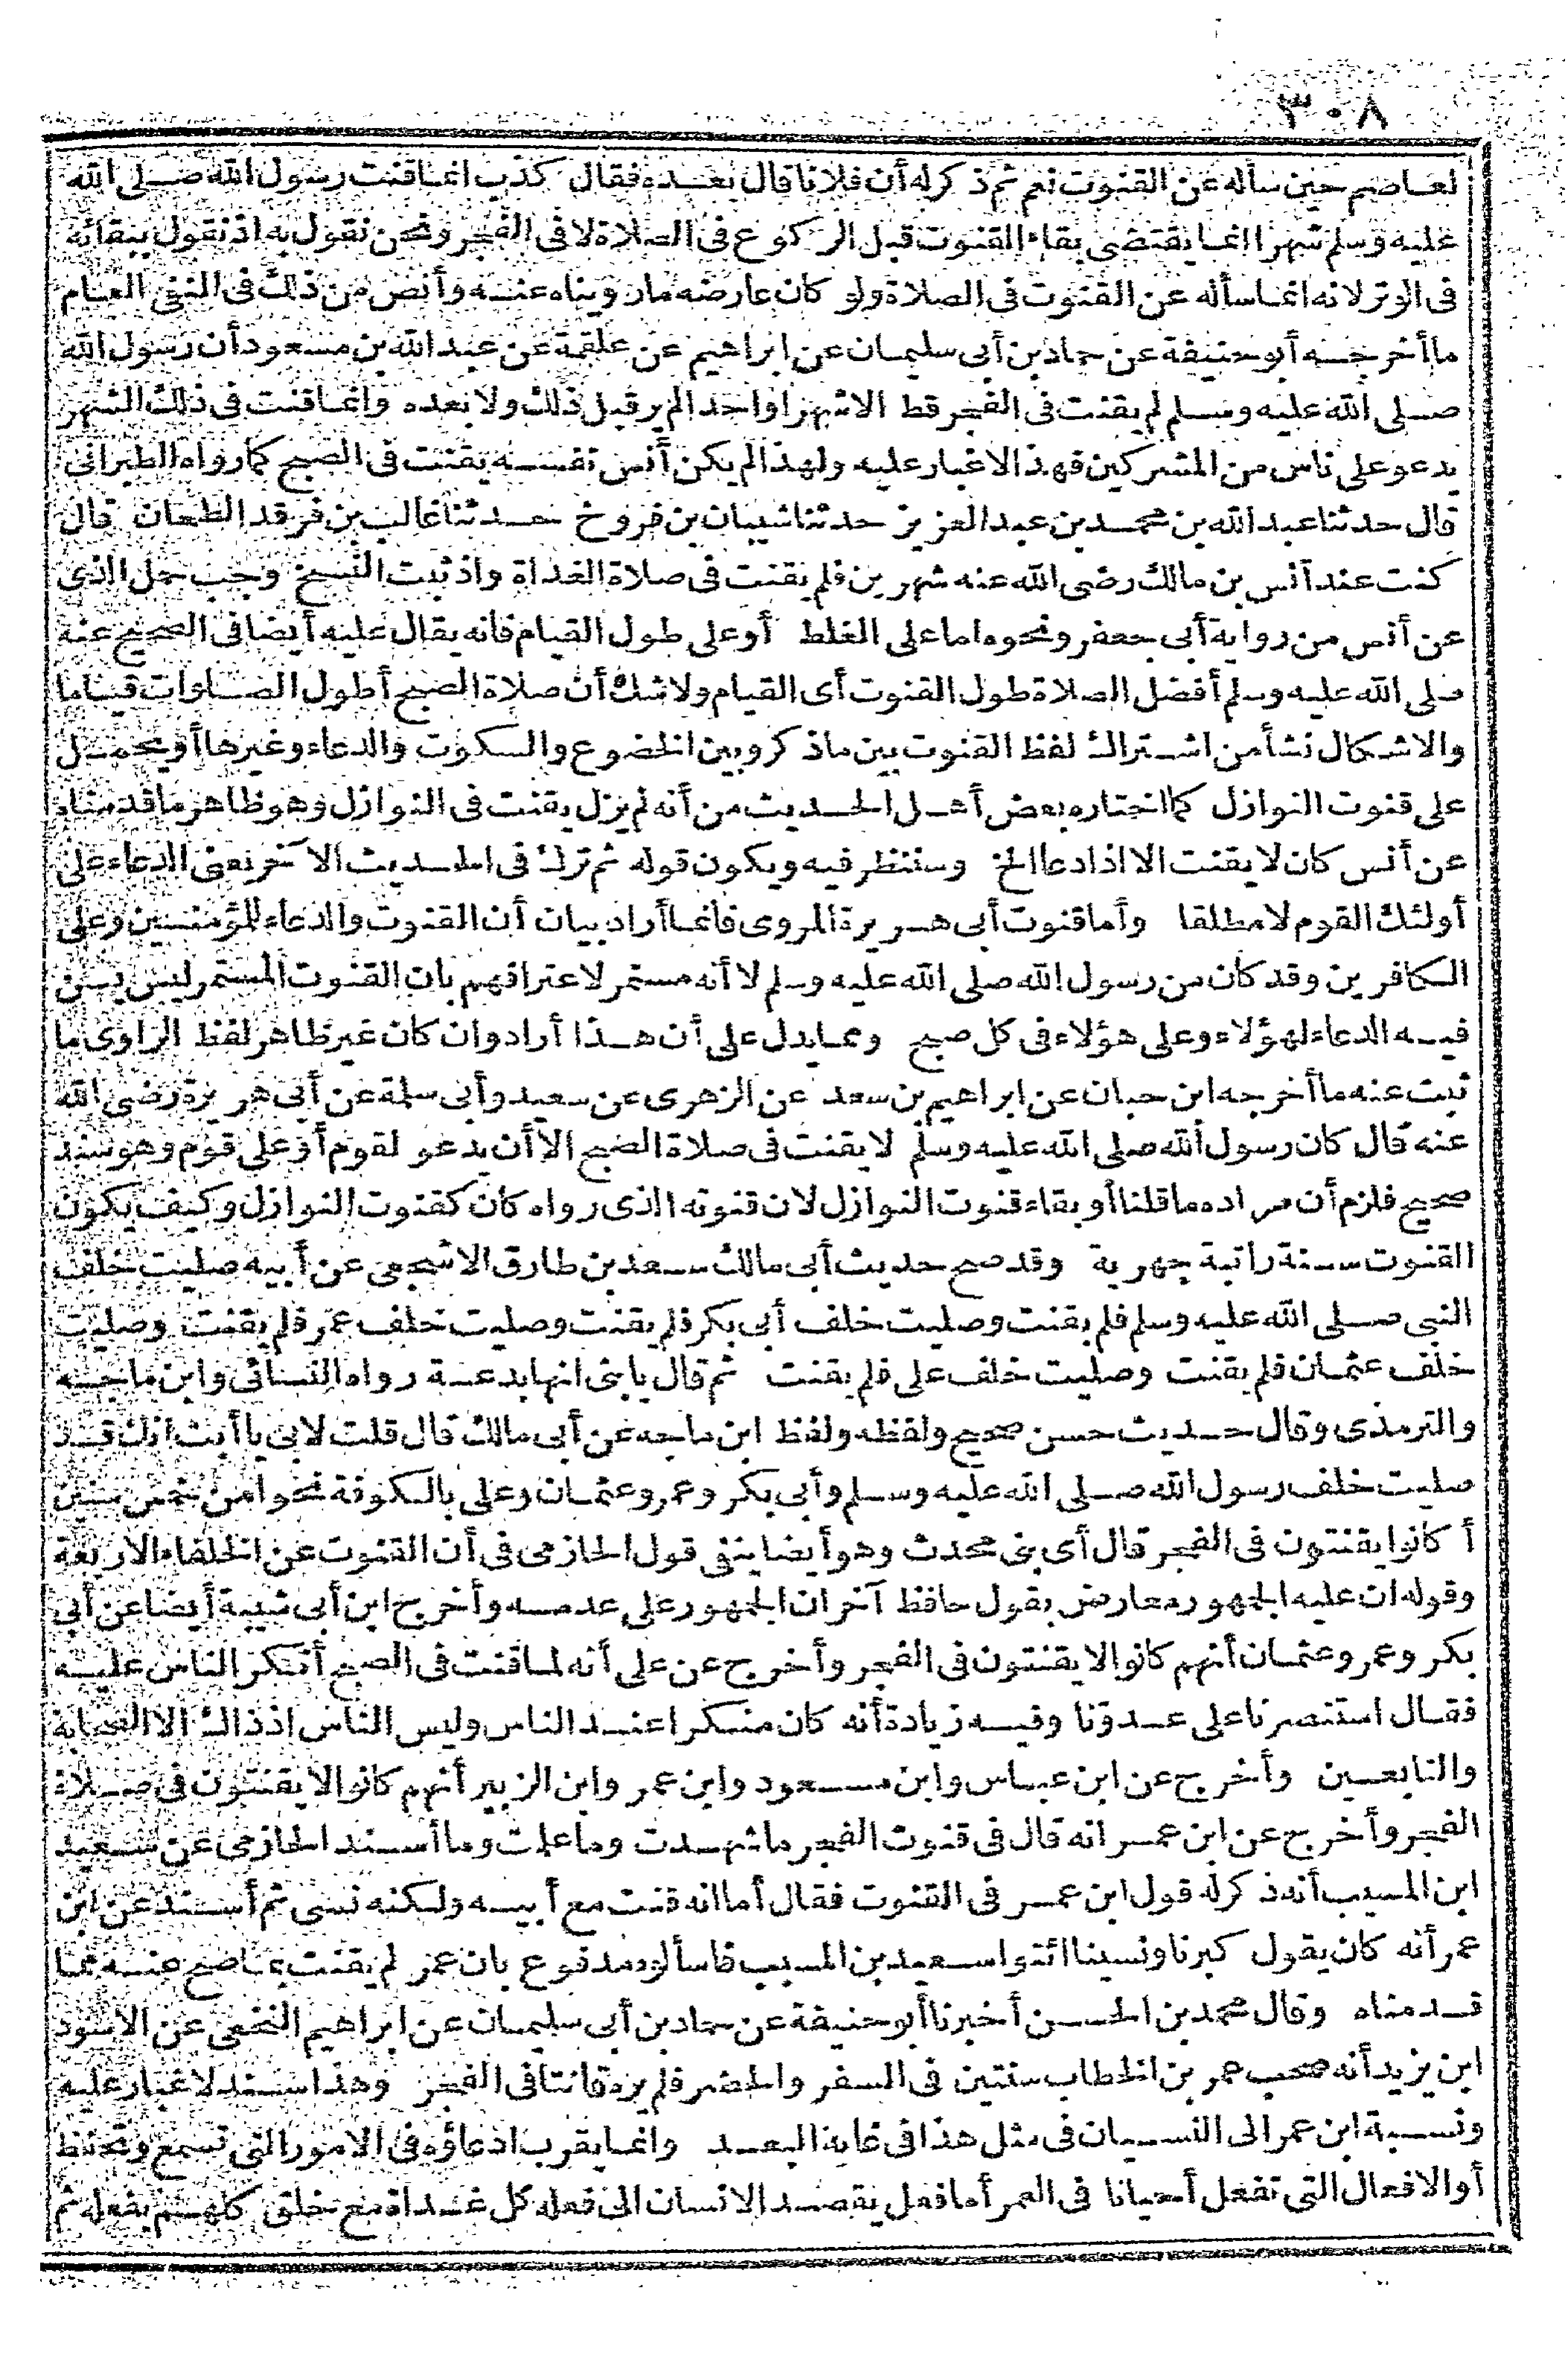 ٣٠٨
لعاصم حين سأله عن القنوت نعم ثم ذكر له أن فلانا قال بعده فقال كذب انما قنت رسول الله صلى الله
عليه وسلم شهرا انما يقتضى بقاء القنوت قبل الركوع فى الصلاة لا فى الفجر ونحن نقول به اذ نقول ببقائه
فى الوتر لانه انما سأله عن القنوت فى الصلاة ولو كان عارضه ما رويناه عنه وأنص من ذلك فى النفى العام
ما أخرجه أبو حنيفة عن حماد بن أبى سليمان عن ابراهيم عن علقمة عن عبد الله بن مسعود أن رسول الله
صلى الله عليه وسلم لم يقنت فى الفجر قط الا شهرا واحدا لم ير قبل ذلك ولا بعده وانما قنت فى ذلك الشهر
يدعو على ناس من المشركين فهذا لا غبار عليه ولهذا لم يكن أنس نفسه يقنت فى الصبح كما رواه الطبرانى
قال حدثنا عبد الله بن محمد بن عبد العزيز حدثنا شيبان بن فروخ حدثنا غالب بن فرقد الطحان قال
كنت عند أنس بن مالك رضى الله عنه شهرين فلم يقنت فى صلاة الغداة واذ ثبت النسخ وجب حمل الذى
عن أنس من رواية أبى جعفر ونحوه اما على الغلط أو على طول القيام فانه يقال عليه أيضا فى الصحيح عنه
صلى الله عليه وسلم أفضل الصلاة طول القنوت أى القيام ولا شك أن صلاة الصبح أطول الصلوات قياما
والاشكال نشأ من اشتراك لفظ القنوت بين ما ذكر وبين الخضوع والسكوت والدعاء وغيرها أو يحمل
على قنوت النوازل كما اختاره بعض أهل الحديث من أنه لم يزل يقنت فى النوازل وهو ظاهر ما قدمناه
عن أنس كان لا يقنت الا اذا دعا الخ وسننظر فيه ويكون قوله ثم ترك فى الحديث الآخر يعنى الدعاء على
أولئك القوم لا مطلقا وأما قنوت أبى هريرة المروى فانما أراد بيان أن القنوت والدعاء للمؤمنين وعلى
الكافرين وقد كان من رسول الله صلى الله عليه وسلم لا أنه مستمر لاعترافهم بان القنوت المستمر ليس يسن
فيه الدعاء لهؤلاء وعلى هؤلاء فى كل صبح ومما يدل على أن هذا أراد وان كان غير ظاهر لفظ الراوى ما
ثبت عنه ما أخرجه ابن حبان عن ابراهيم بن سعد عن الزهرى عن سعيد وأبى سلمة عن أبى هريرة رضى الله
عنه قال كان رسول الله صلى الله عليه وسلم لا يقنت فى صلاة الصبح الا أن يدعو لقوم أو على قوم وهو سند
صحيح فلزم أن مراده ما قلنا أو بقاء قنوت النوازل لان قنوته الذى رواه كان كقنوت النوازل وكيف يكون
القنوت سنة راتبة جهرية وقد صح حديث أبى مالك سعد بن طارق الاشجعى عن أبيه صليت خلف
النبى صلى الله عليه وسلم فلم يقنت وصليت خلف أبى بكر فلم يقنت وصليت خلف عمر فلم يقنت وصليت
خلف عثمان فلم يقنت وصليت خلف على فلم يقنت ثم قال يا بنى انها بدعة رواه النسائى وابن ماجه
والترمذى وقال حديث حسن صحيح ولفظه ولفظ ابن ماجه عن أبى مالك قال قلت لابى يا أبت انك قد
صليت خلف رسول الله صلى الله عليه وسلم وأبى بكر وعمر وعثمان وعلى بالكوفة نحوا من خمس سنين
أكانوا يقنتون فى الفجر قال أى بنى محدث وهو أيضا ينفى قول الحازمى فى أن القنوت عن الخلفاء الاربعة
وقوله ان عليه الجمهور معارض بقول حافظ آخر ان الجمهور على عدمه وأخرج ابن أبى شيبة أيضا عن أبى
بكر وعمر وعثمان أنهم كانوا لا يقنتون فى الفجر وأخرج عن على أنه لما قنت فى الصبح أنكر الناس عليه
فقال استنصرنا على عدونا وفيه زيادة أنه كان منكرا عند الناس وليس الناس اذ ذاك الا الصحابة
والتابعين وأخرج عن ابن عباس وابن مسعود وابن عمر وابن الزبير أنهم كانوا لا يقنتون فى صلاة
الفجر وأخرج عن ابن عمر انه قال فى قنوت الفجر ما شهدت وما علمت وما أسند الحازمى عن سعيد
ابن المسيب أنه ذكر له قول ابن عمر فى القنوت فقال أما انه قنت مع أبيه ولكنه نسى ثم أسند عن ابن
عمر أنه كان يقول كبرنا ونسينا ائتوا سعيد بن المسيب فاسألوه مدفوع بان عمر لم يقنت بما صح عنه مما
قدمناه وقال محمد بن الحسن أخبرنا أبو حنيفة عن حماد بن أبى سليمان عن ابراهيم النخعى عن الاسود
ابن يزيد أنه صحب عمر بن الخطاب سنتين فى السفر والحضر فلم يره قانتا فى الفجر وهذا سند لا غبار عليه
ونسبة ابن عمر الى النسيان فى مثل هذا فى غاية البعد وانما يقرب ادعاؤه فى الامور التى تسمع وتحفظ
أو الافعال التى تفعل أحيانا فى العمر أما فعل يقصد الانسان الى فعله كل غداة مع خلق كلهم يفعله ثم